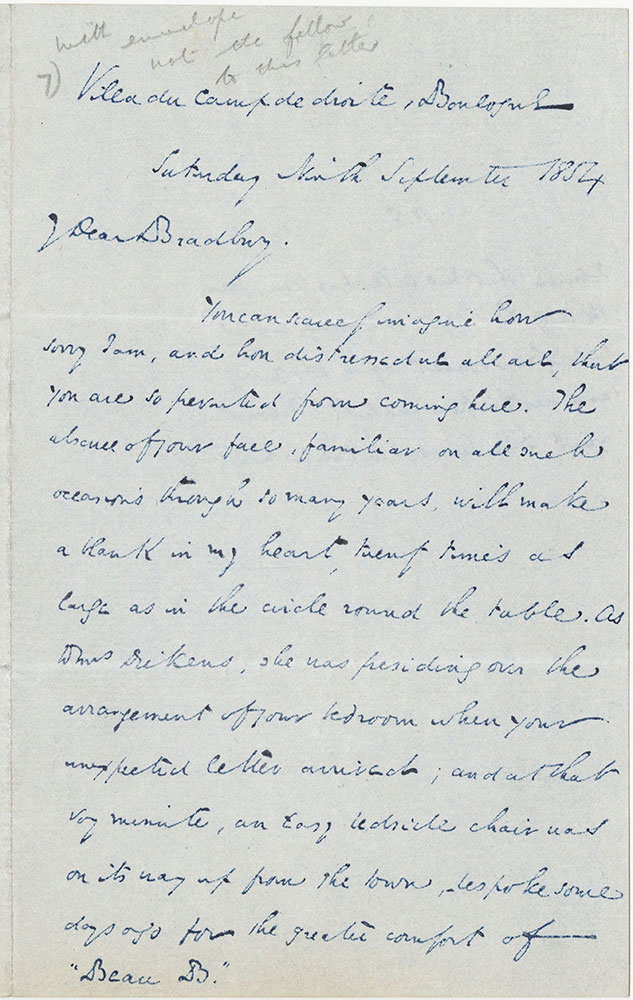 With envelope
not the fellow
to this letter
7)
Villa du Camp de droite, Boulogne
Saturday Ninth September 1854
My Dear Bradbury.
You can scarcely imagine how
sorry I am, and how distressed we all are, that
you are so prevented from coming here. The
absence of your face, familiar on all such
occasions through so many years, will make
a blank in my heart, twenty times as
large as in the circle round the table. As
to Mrs Dickens, she was presiding over the
arrangement of your bedroom when your
unexpected letter arrived; and at that
very minute, an Easy bedside chair was
on its way up from the town, bespoke some
days ago for the greater comfort of
"Beau B."